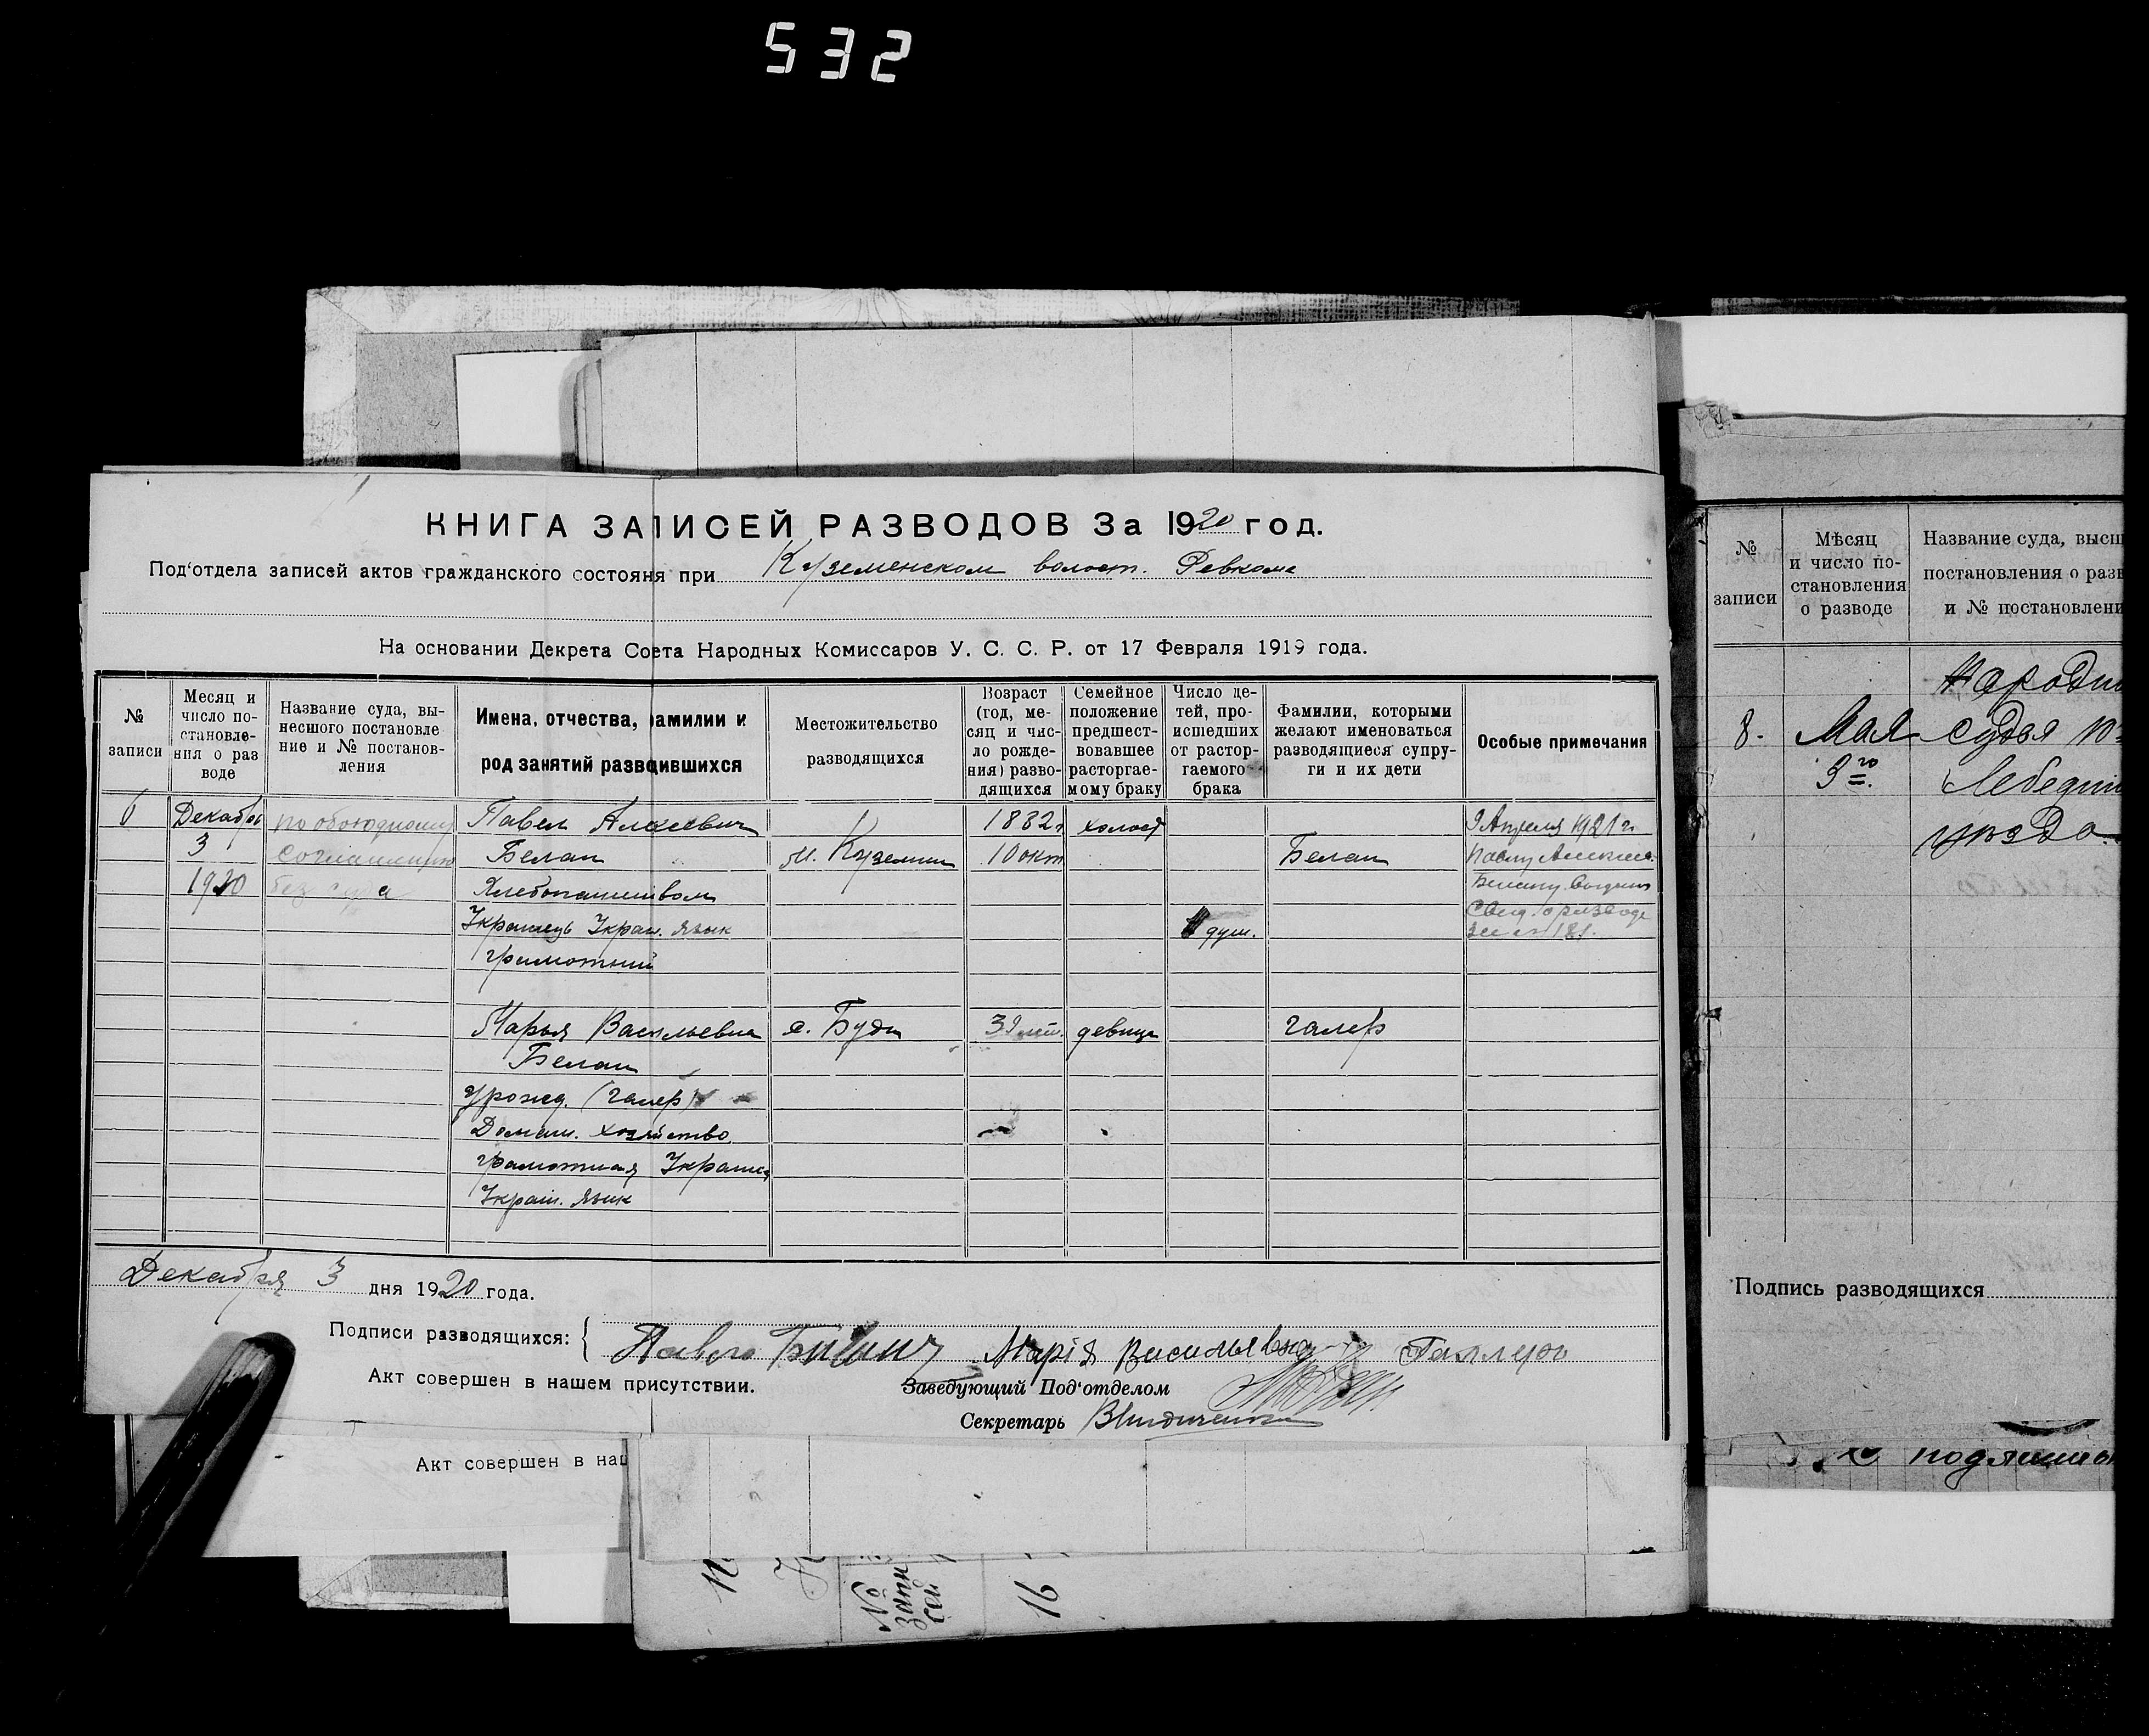 532
КНИГА ЗАПИСЕЙ РАЗВОДОВ За 1920 год.
Под‘отдела записей актов гражданского состояня при Куземенском волост. Ревкоме
На основании Декрета Совета Народных Комиссаров У. С. С. Р. от 17 Февраля 1919 года.
№ записи
Месяц и число постановления о раз воде
Название суда, вынесшого постановле ние и № постановления
Имена, отчества, фамилии и род занятий разводившихся
Местожительство разводящихся
Возраст (год, месяц и число рождения) разводящихся
Семейное положение предшествовавшее расторгаемому браку
Число детей, происшедших от расторгаемого брака
Фамилии, которыми желают именоваться разводящиеся супруги и их дети
Особые примечания
6 Декабрь по обоюдному Павел Алексеевич 1882 г холост 9 Апреля 1921 г.
3 соглашению Белан м. Куземин 10 окт Белан
1920 без суда Хлебопашеством
Украинец Украин. язык душ. Свид. о разводе
грамотный за № 181.
Марья Васильевна с. Буды 39 лет. девица Галер
Белан
Урожд. (Галер)
Домаш. хозяйство
грамотная
Украин. язык
Декабря 3 дня 1920 года.
Подписи разводящихся: Марія Васильявна
Акт совершен в нашем присутствии. Заведующий Под‘отделом
Секретарь
Акт совершен в наш
№ запи сей
16
№ записи
Мѣсяц и число постановления о разводе
Название суда, высш
постановления о разв
и № постановлени
8. Мая Судья 10
3го
уезда
Подпись разводящихся